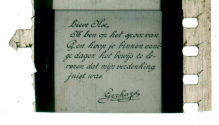 Lieve Eloe,
Ik ben op het spoor van
G. en hoop je binnen eeni-
ge dagen het bewijs te le-
veren dat mijn verdenking
juist was.
Gerhard